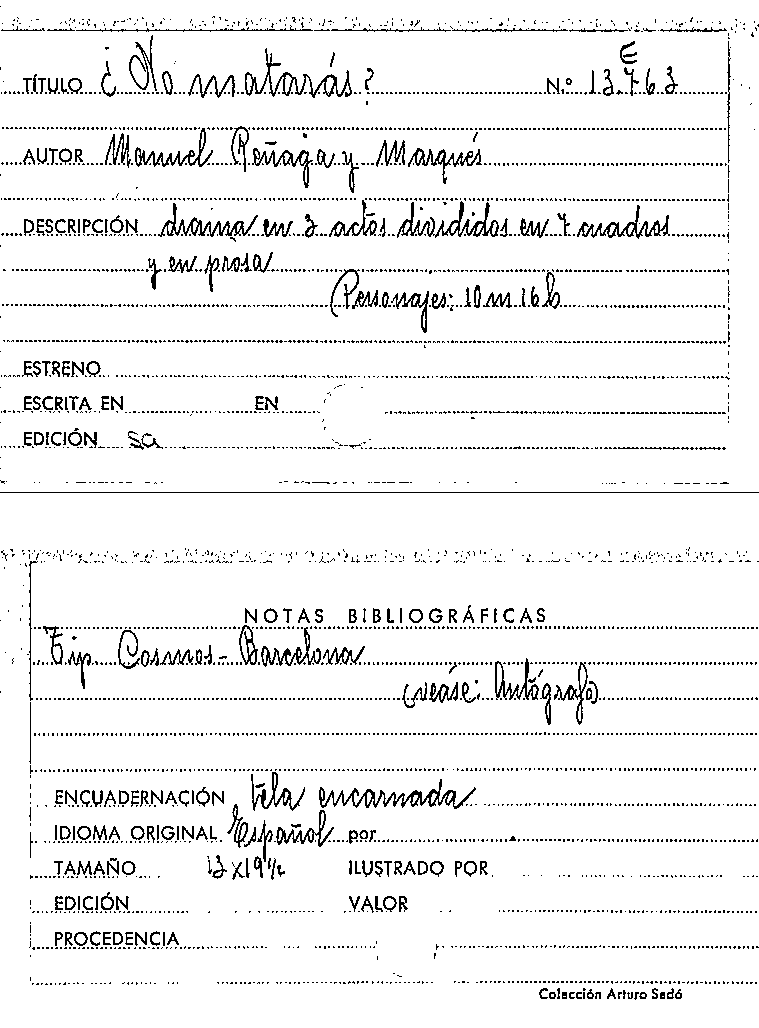 TÍTULO ¿No matarás? N.º 13.763
E
AUTOR Manuel Reñaga y Marqués
DESCRIPCIÓN drama en 3 actos divididos en 7 cuadros
y en prosa
(Personajes: 10 m 16 h
ESTRENO
ESCRITA EN EN
EDICIÓN sa
NOTAS BIBLIOGRÁFICAS
Tip. Cosmos - Barcelona
(vease: Autógrafo)
ENCUADERNACIÓN tela encarnada
IDIOMA ORIGINAL Español por
TAMAÑO 13 x 19 1/2 ILUSTRADO POR
EDICIÓN VALOR
PROCEDENCIA
Colección Arturo Sedó